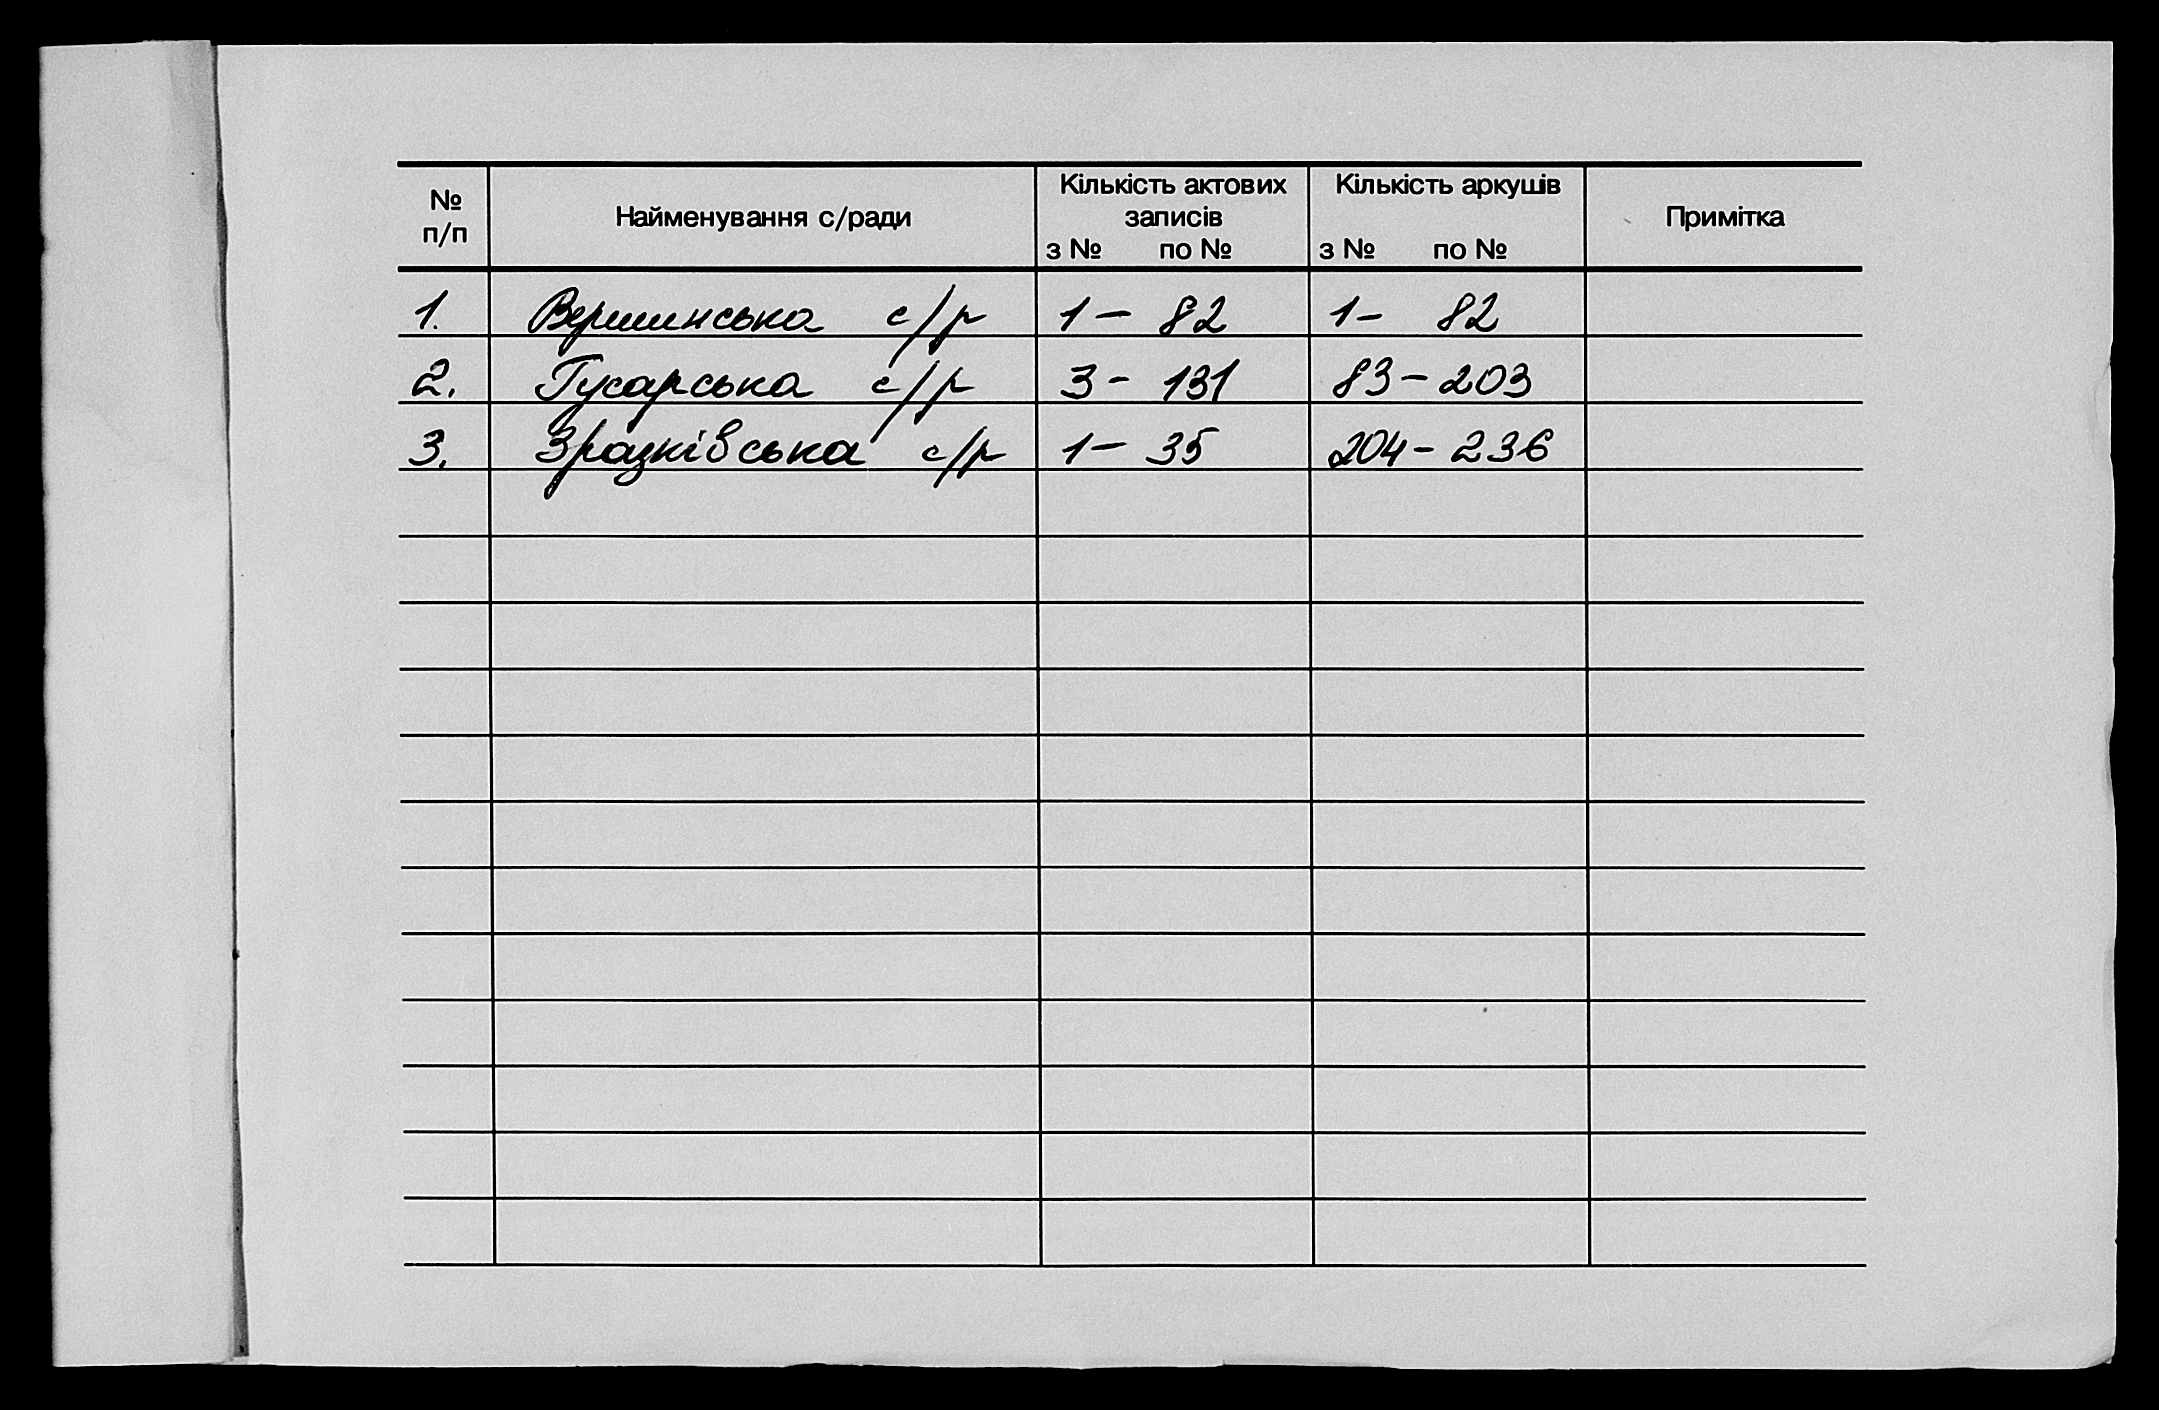 № п/п Найменування с/ради Кількість актових записів з № по № Кількість аркушів з № по № Примітка
1. Вершинська с/р 1 – 82 1 – 82
2. Гусарська с/р 3 – 131 83 – 203
3. Зразківська с/р 1 – 35 204 – 236